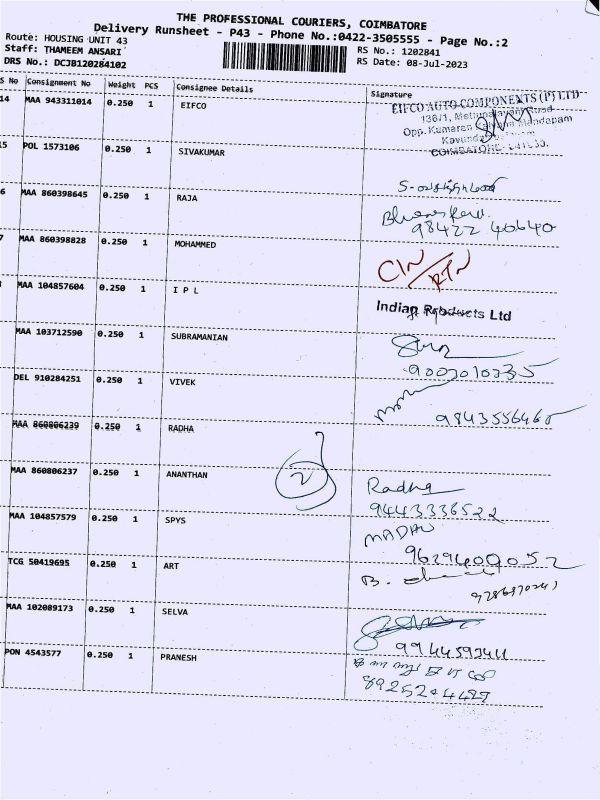 THE PROFESSIONAL COURIERS, COIMBATORE
Delivery Runsheet - P43 - Phone No.:0422-3505555 - Page No.:2
Route: HOUSING UNIT 43
Staff: THAMEEM ANSARI
DRS No.: DCJB120284102
RS No.: 1202841
RS Date: 08-Jul-2023
S No Consignment No Weight PCS Consignee Details Signature
14 MAA 943311014 0.250 1 EIFCO
EIFCO AUTO COMPONENTS (P) LTD
138/1,
Opp. Kumaran Mandapam
15 POL 1573106 0.250 1 SIVAKUMAR
6 MAA 860398645 0.250 1 RAJA
98422 40640
7 MAA 860398828 0.250 1 MOHAMMED CIN/RTN
MAA 104857604 0.250 1 I P L
Indian Products Ltd
MAA 103712590 0.250 1 SUBRAMANIAN
9003010335
DEL 910284251 0.250 1 VIVEK
9843556465
MAA 860806239 0.250 1 RADHA
MAA 860806237 0.250 1 ANANTHAN Radha
9443336522
MAA 104857579 0.250 1 SPYS MADHU
9629400052
TCG 50419695 0.250 1 ART B.
MAA 102089173 0.250 1 SELVA
9944593411
PON 4543577 0.250 1 PRANESH